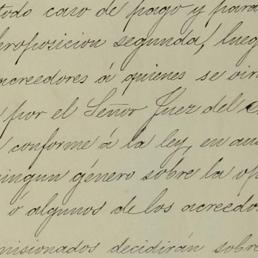 todo caso de pago y para
proposicion segunda, lueg
acreedores á quienes se oir
por el Señor Juez del
conforme á la ley, en au
ningun género sobre la op
ó algunos de los acreedo
misionados decidirán sobre